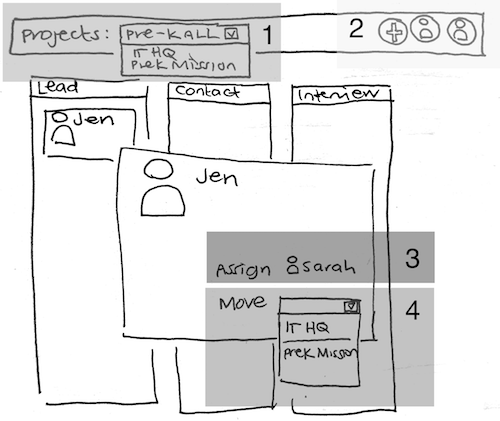 Projects: Pre-KALL 1 2
IT HQ
PreK Mission
Lead Contact Interview
Jen
Jen
Assign Sarah 3
Move 4
IT HQ
PreK Mission